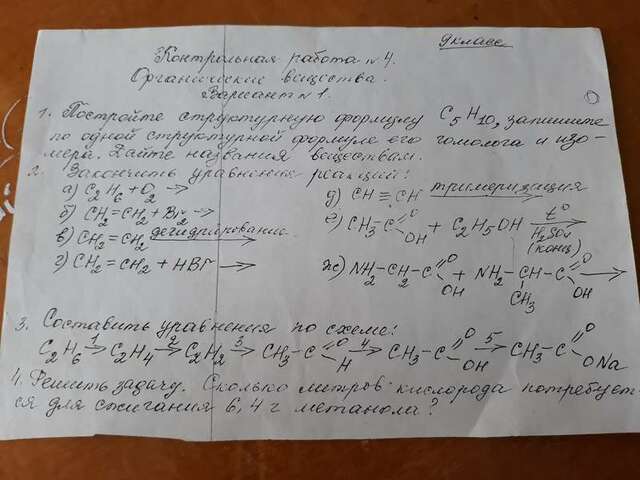 9 класс
Контрольная работа №4.
Органические вещества.
Вариант №1.
1. Постройте структурную формулу C5H10, запишите
по одной структурной формуле его гомолога и изо-
мера. Дайте названия веществам.
2. Закончить уравнения реакций:
а) C2H6 + O2 →
б) CH2=CH2 + Br2 →
в) CH2=CH2 дегидрирование →
г) CH2=CH2 + HBr →
д) CH≡CH тримеризация →
е) CH3-C(=O)OH + C2H5OH t° H2SO4 (конц) →
ж) NH2-CH2-C(=O)OH + NH2-CH(CH3)-C(=O)OH →
3. Составить уравнения по схеме:
C2H6 1→ C2H4 2→ C2H2 3→ CH3-C(=O)H 4→ CH3-C(=O)OH 5→ CH3-C(=O)ONa
4. Решить задачу. Сколько метров кислорода потребует-
ся для сжигания 6,4 г метанола?